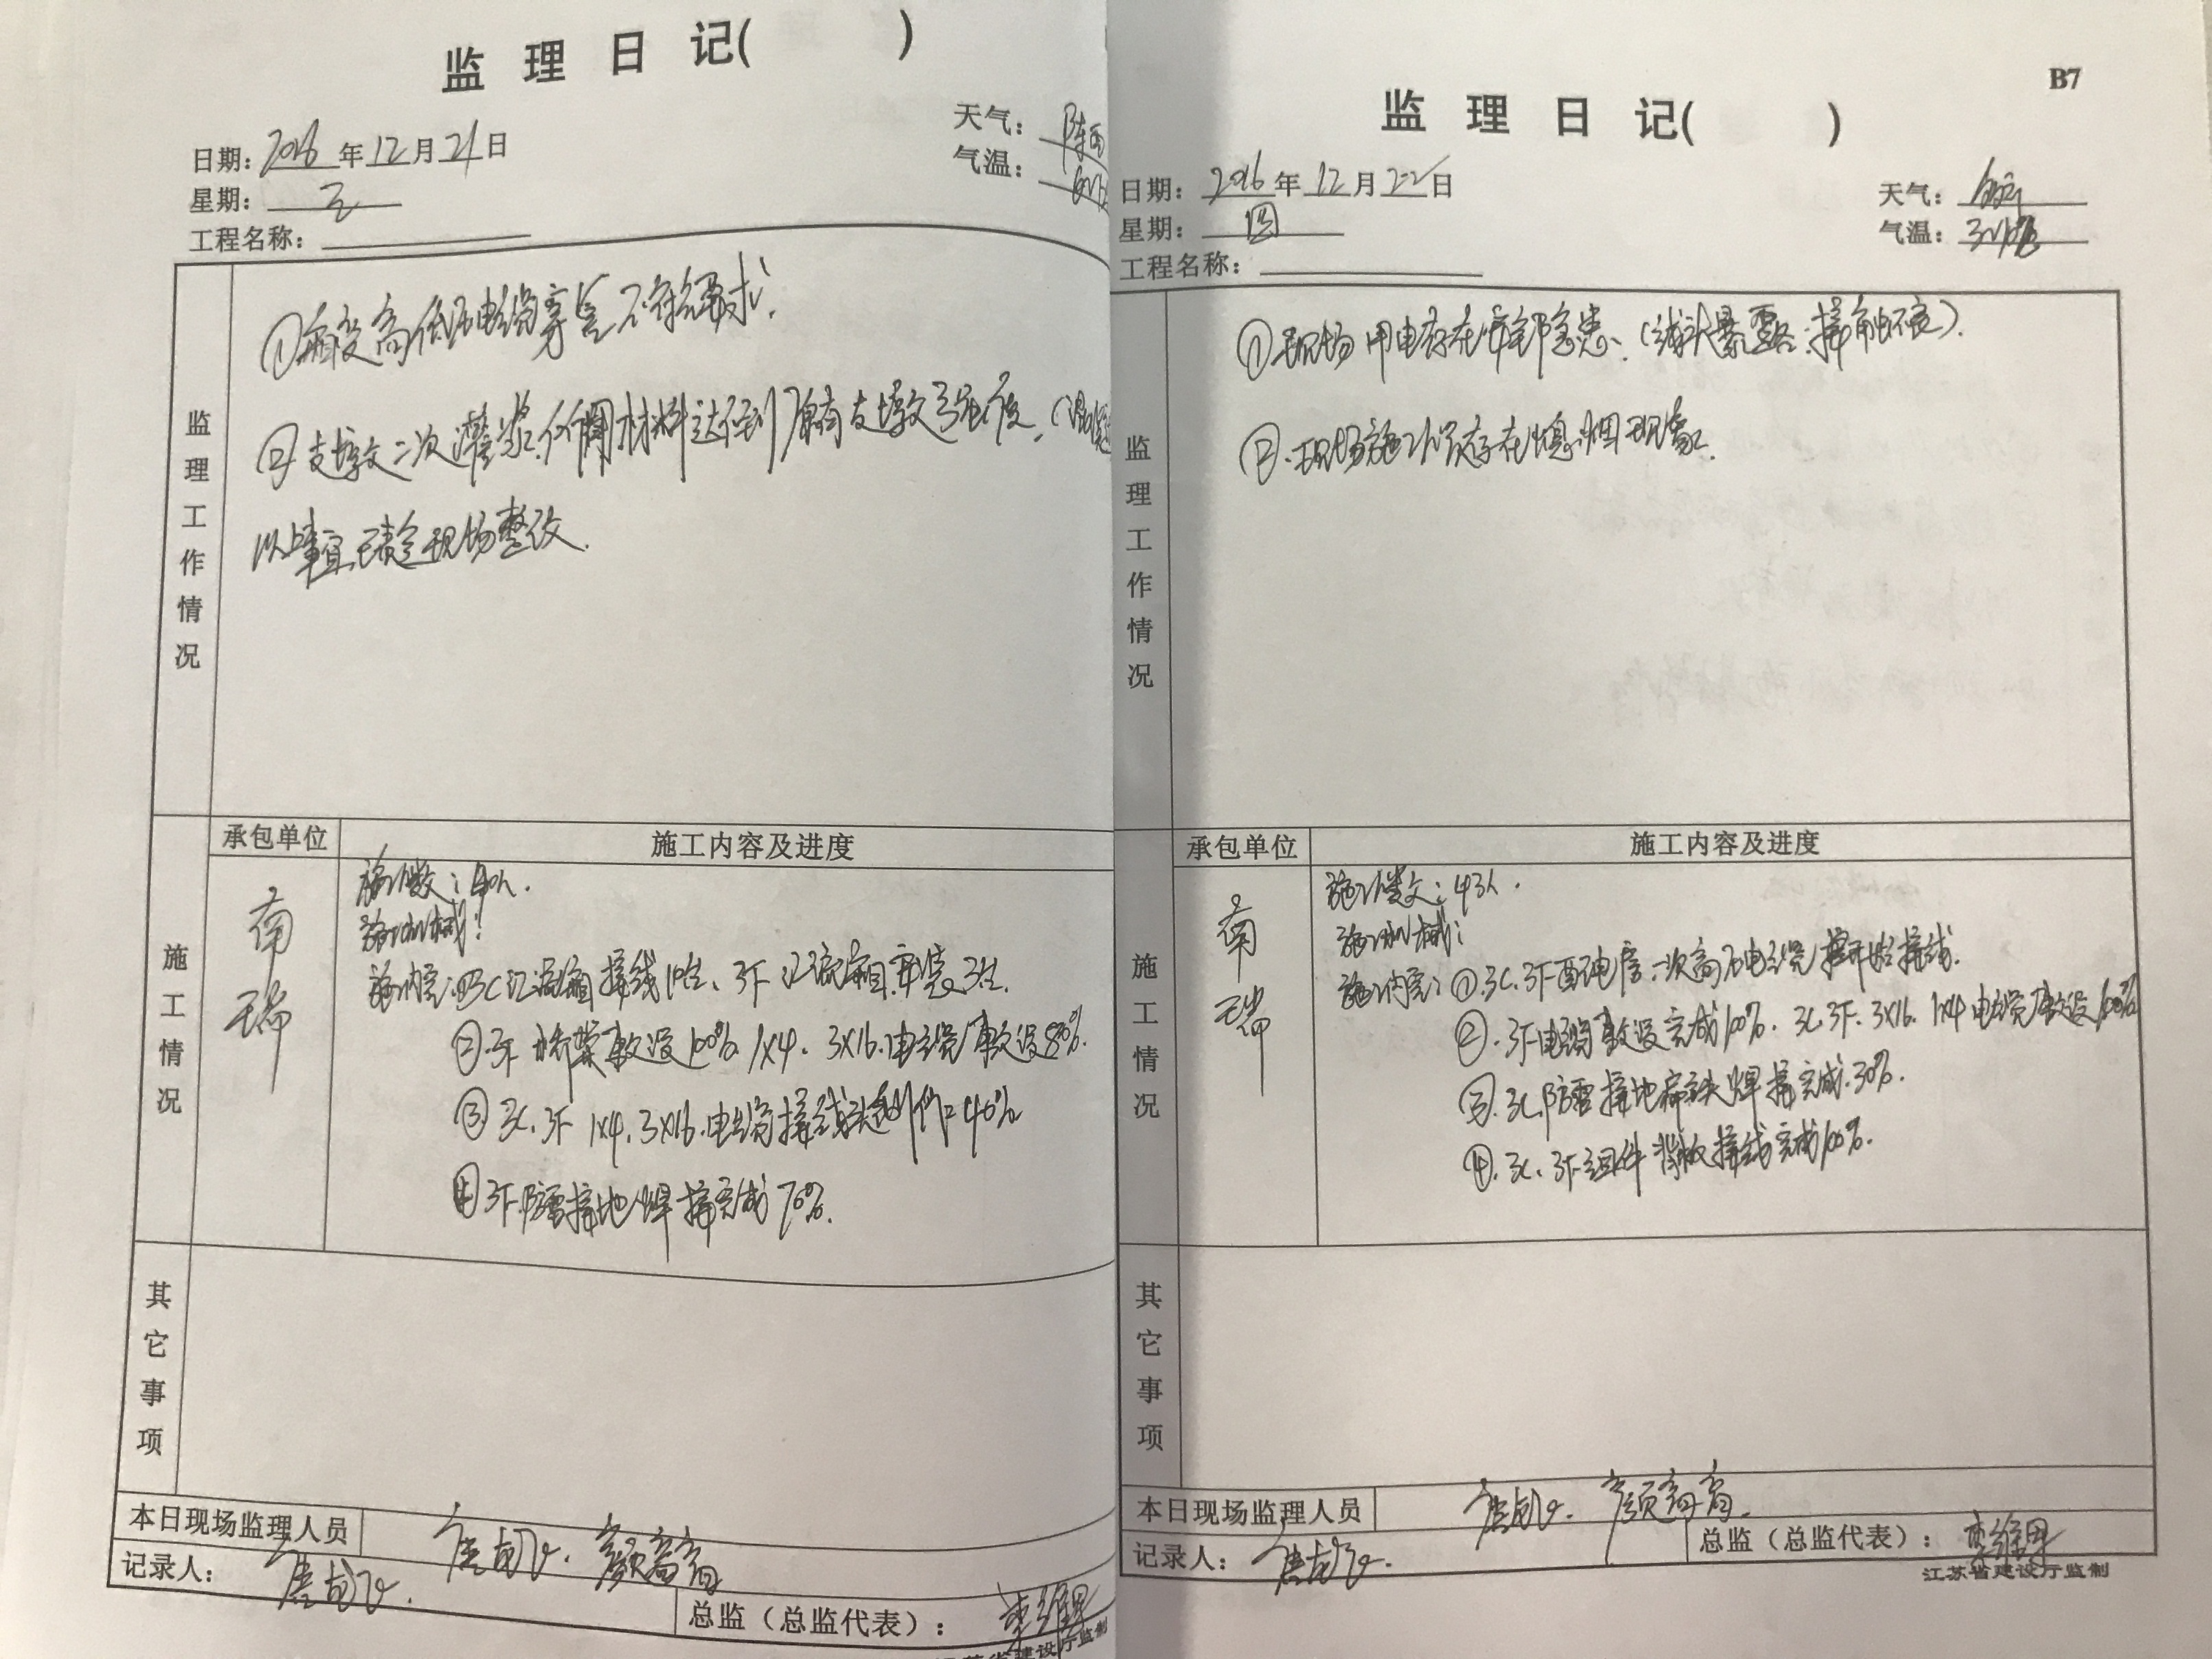 监理日记( )
日期：2016年12月21日
天气：阵雨
星期：三
气温：
工程名称：
监理工作情况
①箱变高低压电缆穿管不符合要求.
②支墩二次灌浆.所用材料达不到原有支墩强度.
以上事宜.已责令现场整改.
承包单位
施工内容及进度
施工情况
南瑞
施工人数：40人.
施工机械：
施工内容：①3C汇流箱接线10台、3F汇流箱安装3台.
②.3F桥架敷设100%. 1×4. 3×16.电缆敷设80%.
③3C.3F 1×4.3×16.电缆接线头制作40%
④3F.防雷接地焊接完成70%.
其它事项
本日现场监理人员
记录人：
总监（总监代表）：
B7
监理日记( )
日期：2016年12月22日
天气：
星期：四
气温：
工程名称：
监理工作情况
①现场用电存在安全隐患、(线头暴露；接触不良).
②.现场施工人员存在吸烟现象.
承包单位
施工内容及进度
施工情况
南瑞
施工人数：43人.
施工机械：
施工内容：①.3C.3F配电房.一次高压电缆开始接线.
②.3F电缆敷设完成100%. 3C.3F.3×16. 1×4电缆敷设100%
③.3C.防雷接地扁铁焊接完成.30%.
④.3C、3F.组件背板接线完成100%.
其它事项
本日现场监理人员
记录人：
总监（总监代表）：
江苏省建设厅监制